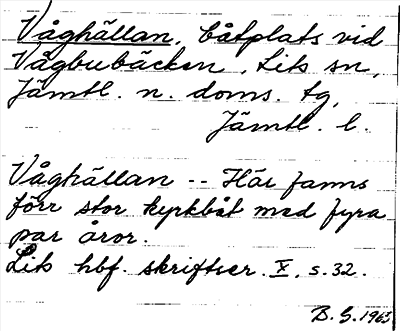 Våghällan, båtplats vid
Vågbubäcken, Lits sn,
Jämtl. n. doms. tg,
Jämtl. l.
Våghällan -- Här fanns
förr stor kyrkbåt med fyra
par åror.
Lits hbf. skriftser. X, s. 32.
B. S. 1963.